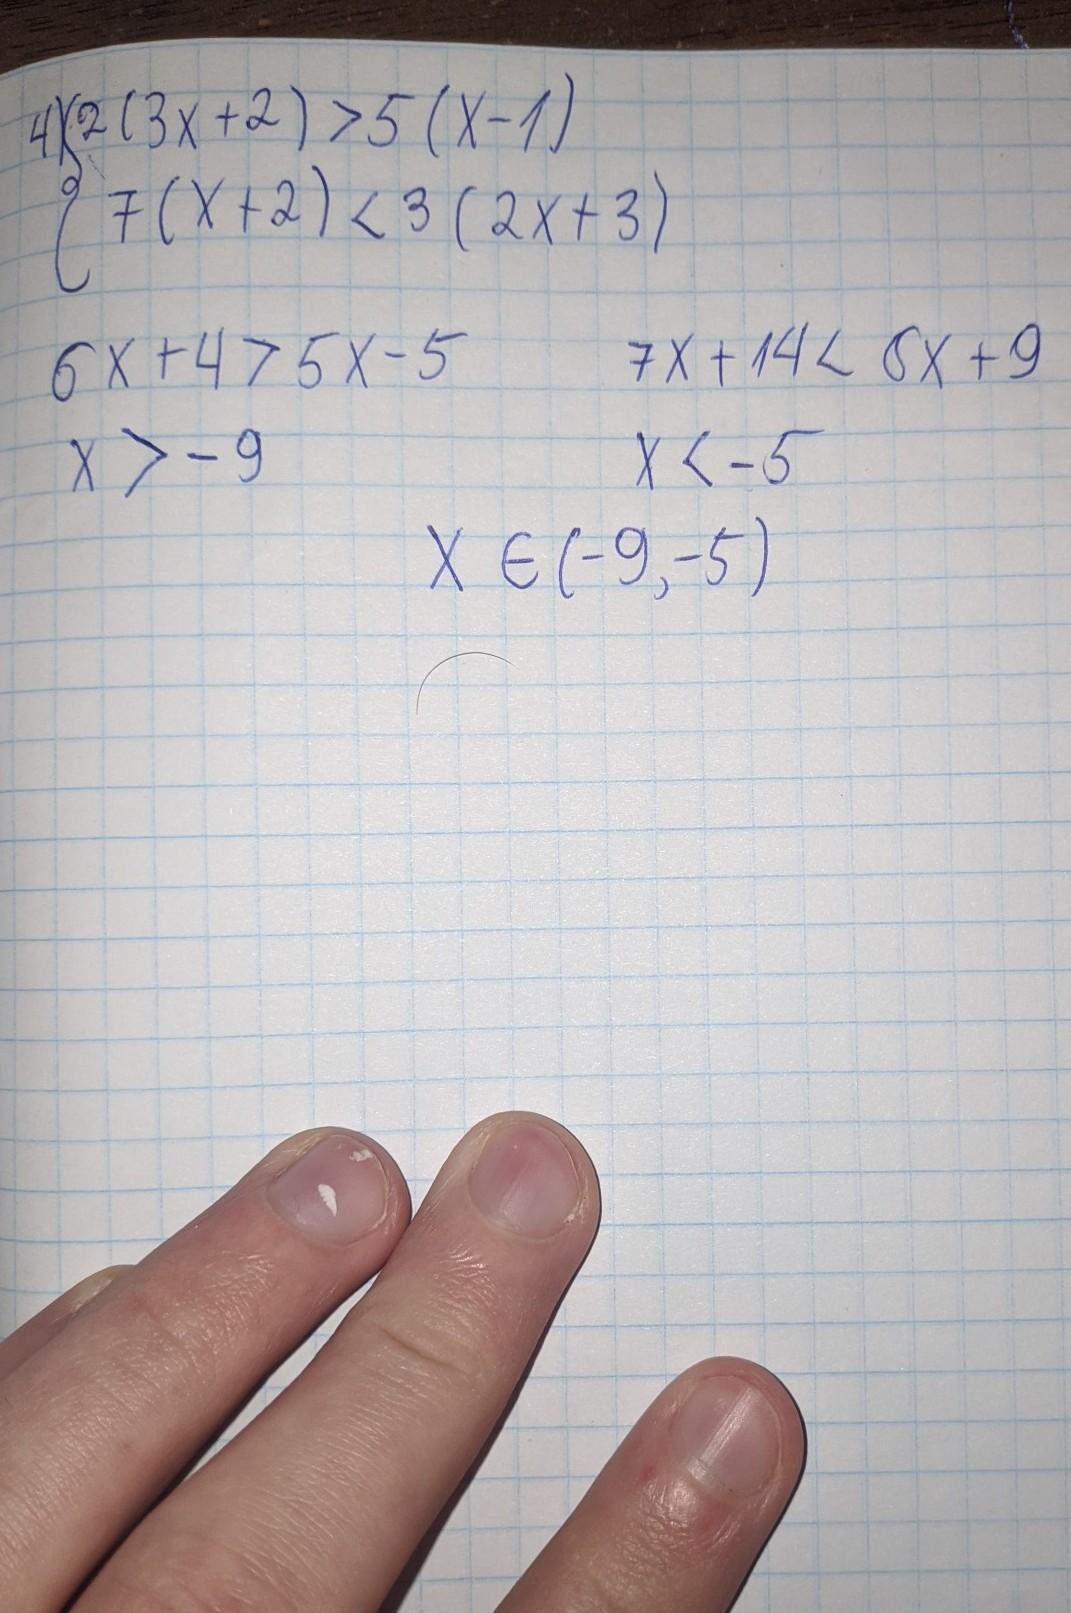 4) { 2(3x+2) > 5(x-1)
7(x+2) < 3(2x+3)
6x+4 > 5x-5 7x+14 < 6x+9
x > -9 x < -5
x ∈ (-9,-5)